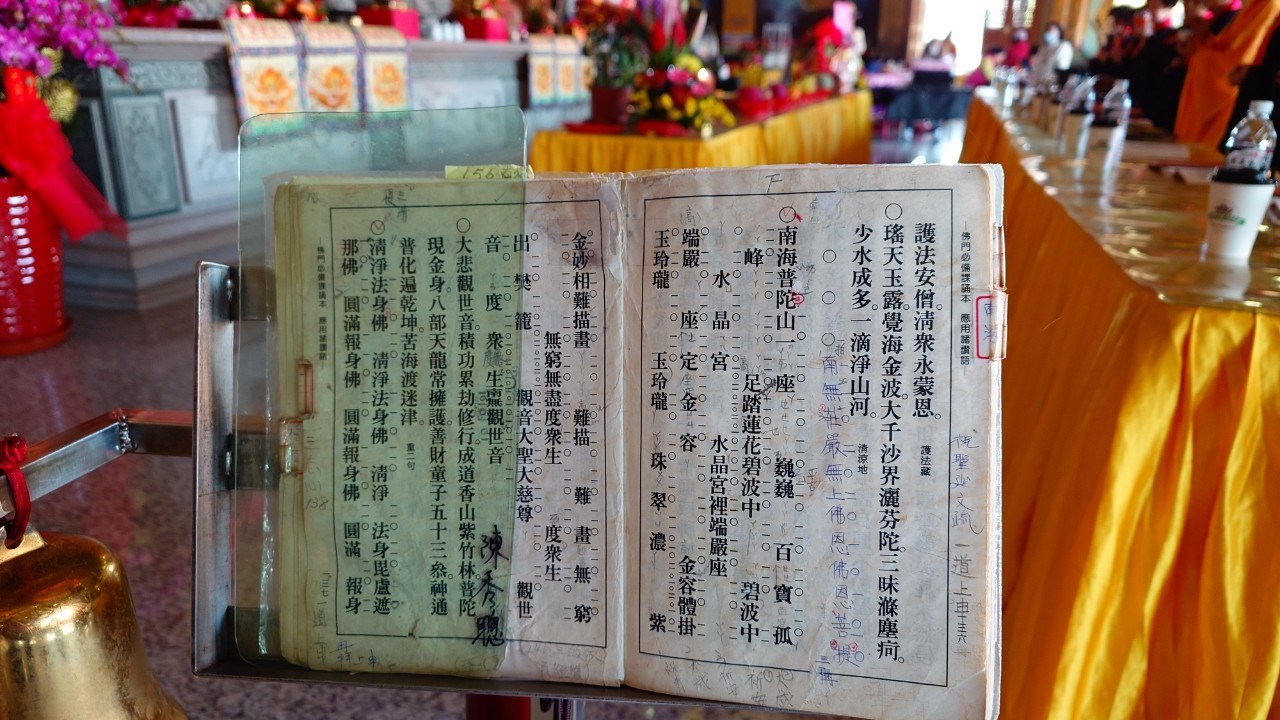 佛門必備課誦本 應用諸讚語
護法安僧清衆永蒙恩。 護法藏
○瑤天玉露覺海金波大千沙界灑芬陀三昧滌塵疴。
少水成多一滴淨山河。 清涼地
○ ○ ○ 南無莊嚴無上佛恩佛恩菩提
三稱
○南海普陀山一座 巍巍 百寶孤
峰 足踏蓮花碧波中 碧波中
水晶宮 水晶宮裡端嚴座
端嚴 座定金容 金容體掛
玉玲瓏 玉玲瓏珠翠濃 紫
156
金妙相難描畫 難描難畫無窮
無窮無盡度衆生 度衆生
出樊籠 觀音大聖大慈尊 觀世
音度衆生靈觀世音
陳秀聰
○大悲觀世音積功累劫修行成道香山紫竹林普陀
現金身八部天龍常擁護善財童子五十三叅神通
普化遍乾坤苦海渡迷津 重二句
○淸淨法身佛 淸淨法身佛 淸淨 法身毘盧遮
那佛 圓滿報身佛 圓滿報身佛 圓滿 報身
佛門必備課誦本 應用諸讚語